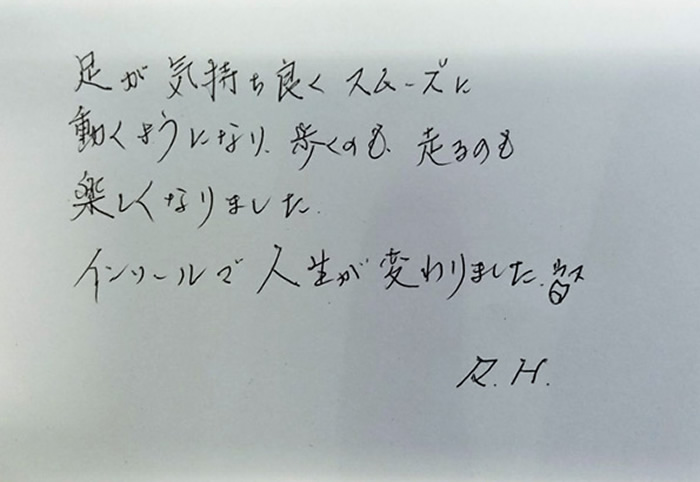 足が気持ち良くスムーズに
動くようになり、歩くのも、走るのも
楽しくなりました.
インソールで人生が変わりました.
R. H.